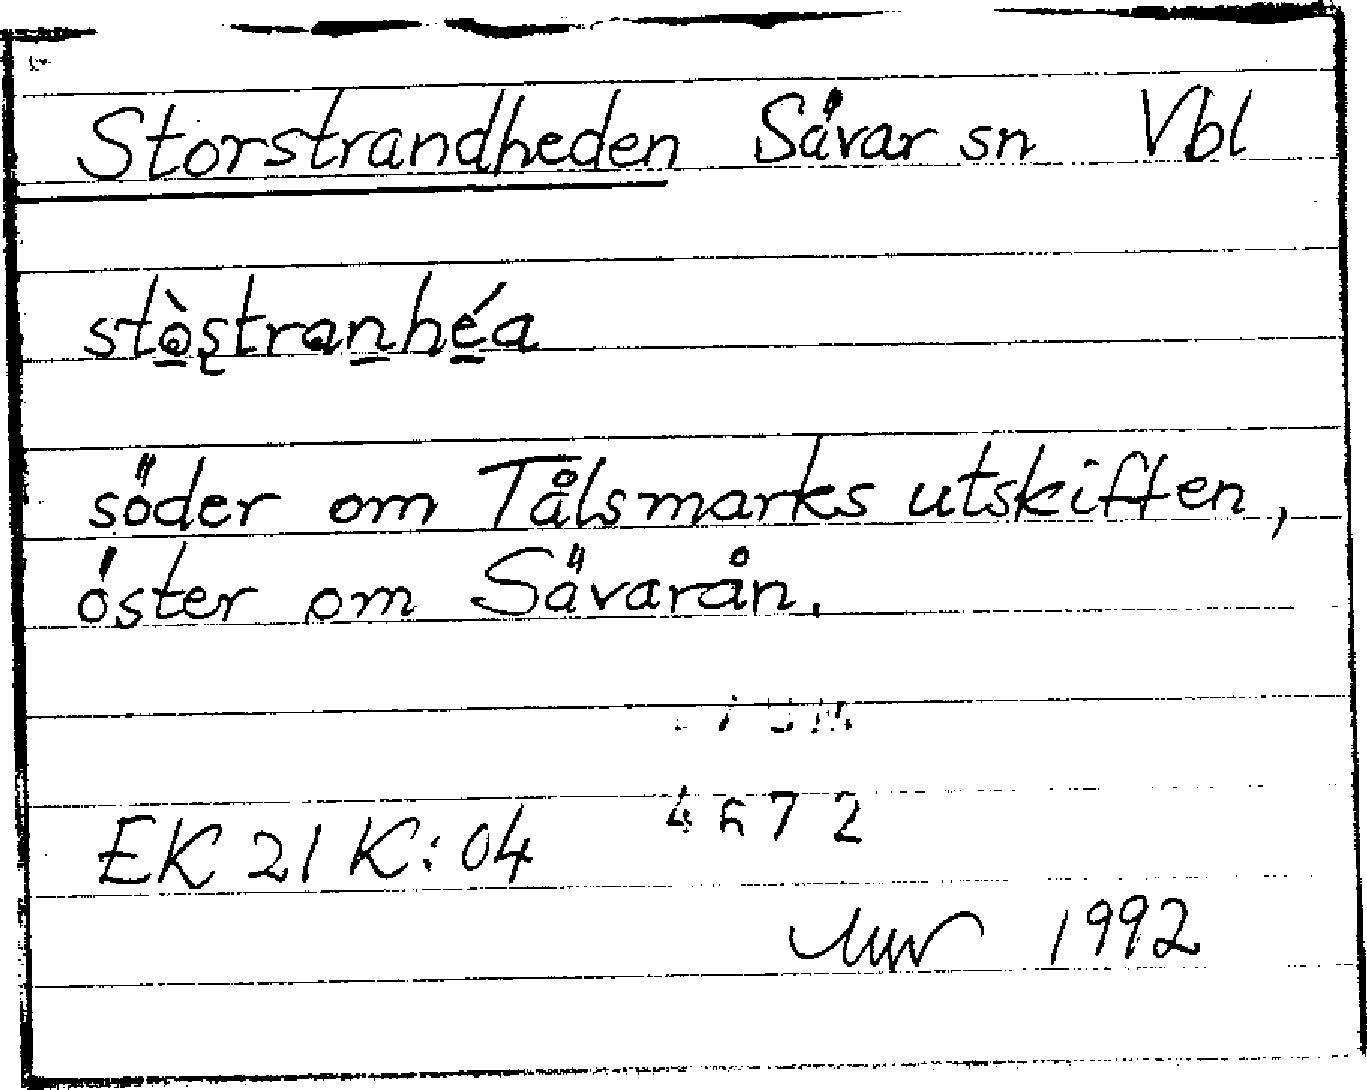 Storstrandheden Sävar sn Vbl
stò̱s̢tranẖé̱a
söder om Tålsmarks utskiften,
öster om Sävarån.
EK 21 K:04
1992